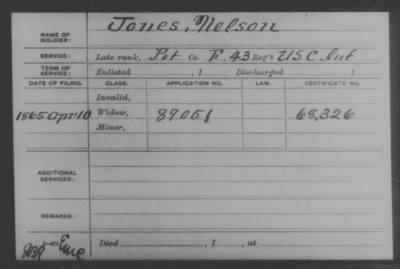 NAME OF SOLDIER: Jones, Nelson
SERVICE: Late rank, Pvt Co. F, 43 Reg't U S C Inf
TERM OF SERVICE: Enlisted , 1 Discharged , 1
DATE OF FILING. CLASS. APPLICATION NO. LAW. CERTIFICATE NO.
Invalid,
1865 Apr 10 Widow, 89051 68,326
Minor,
ADDITIONAL SERVICES:
REMARKS:
Died , 1 , at